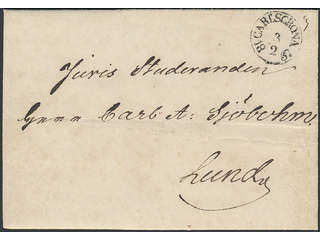 B: CARLSCRONA
3
2
Juris Studeranden
Carl A: Sjöbohm
Lund